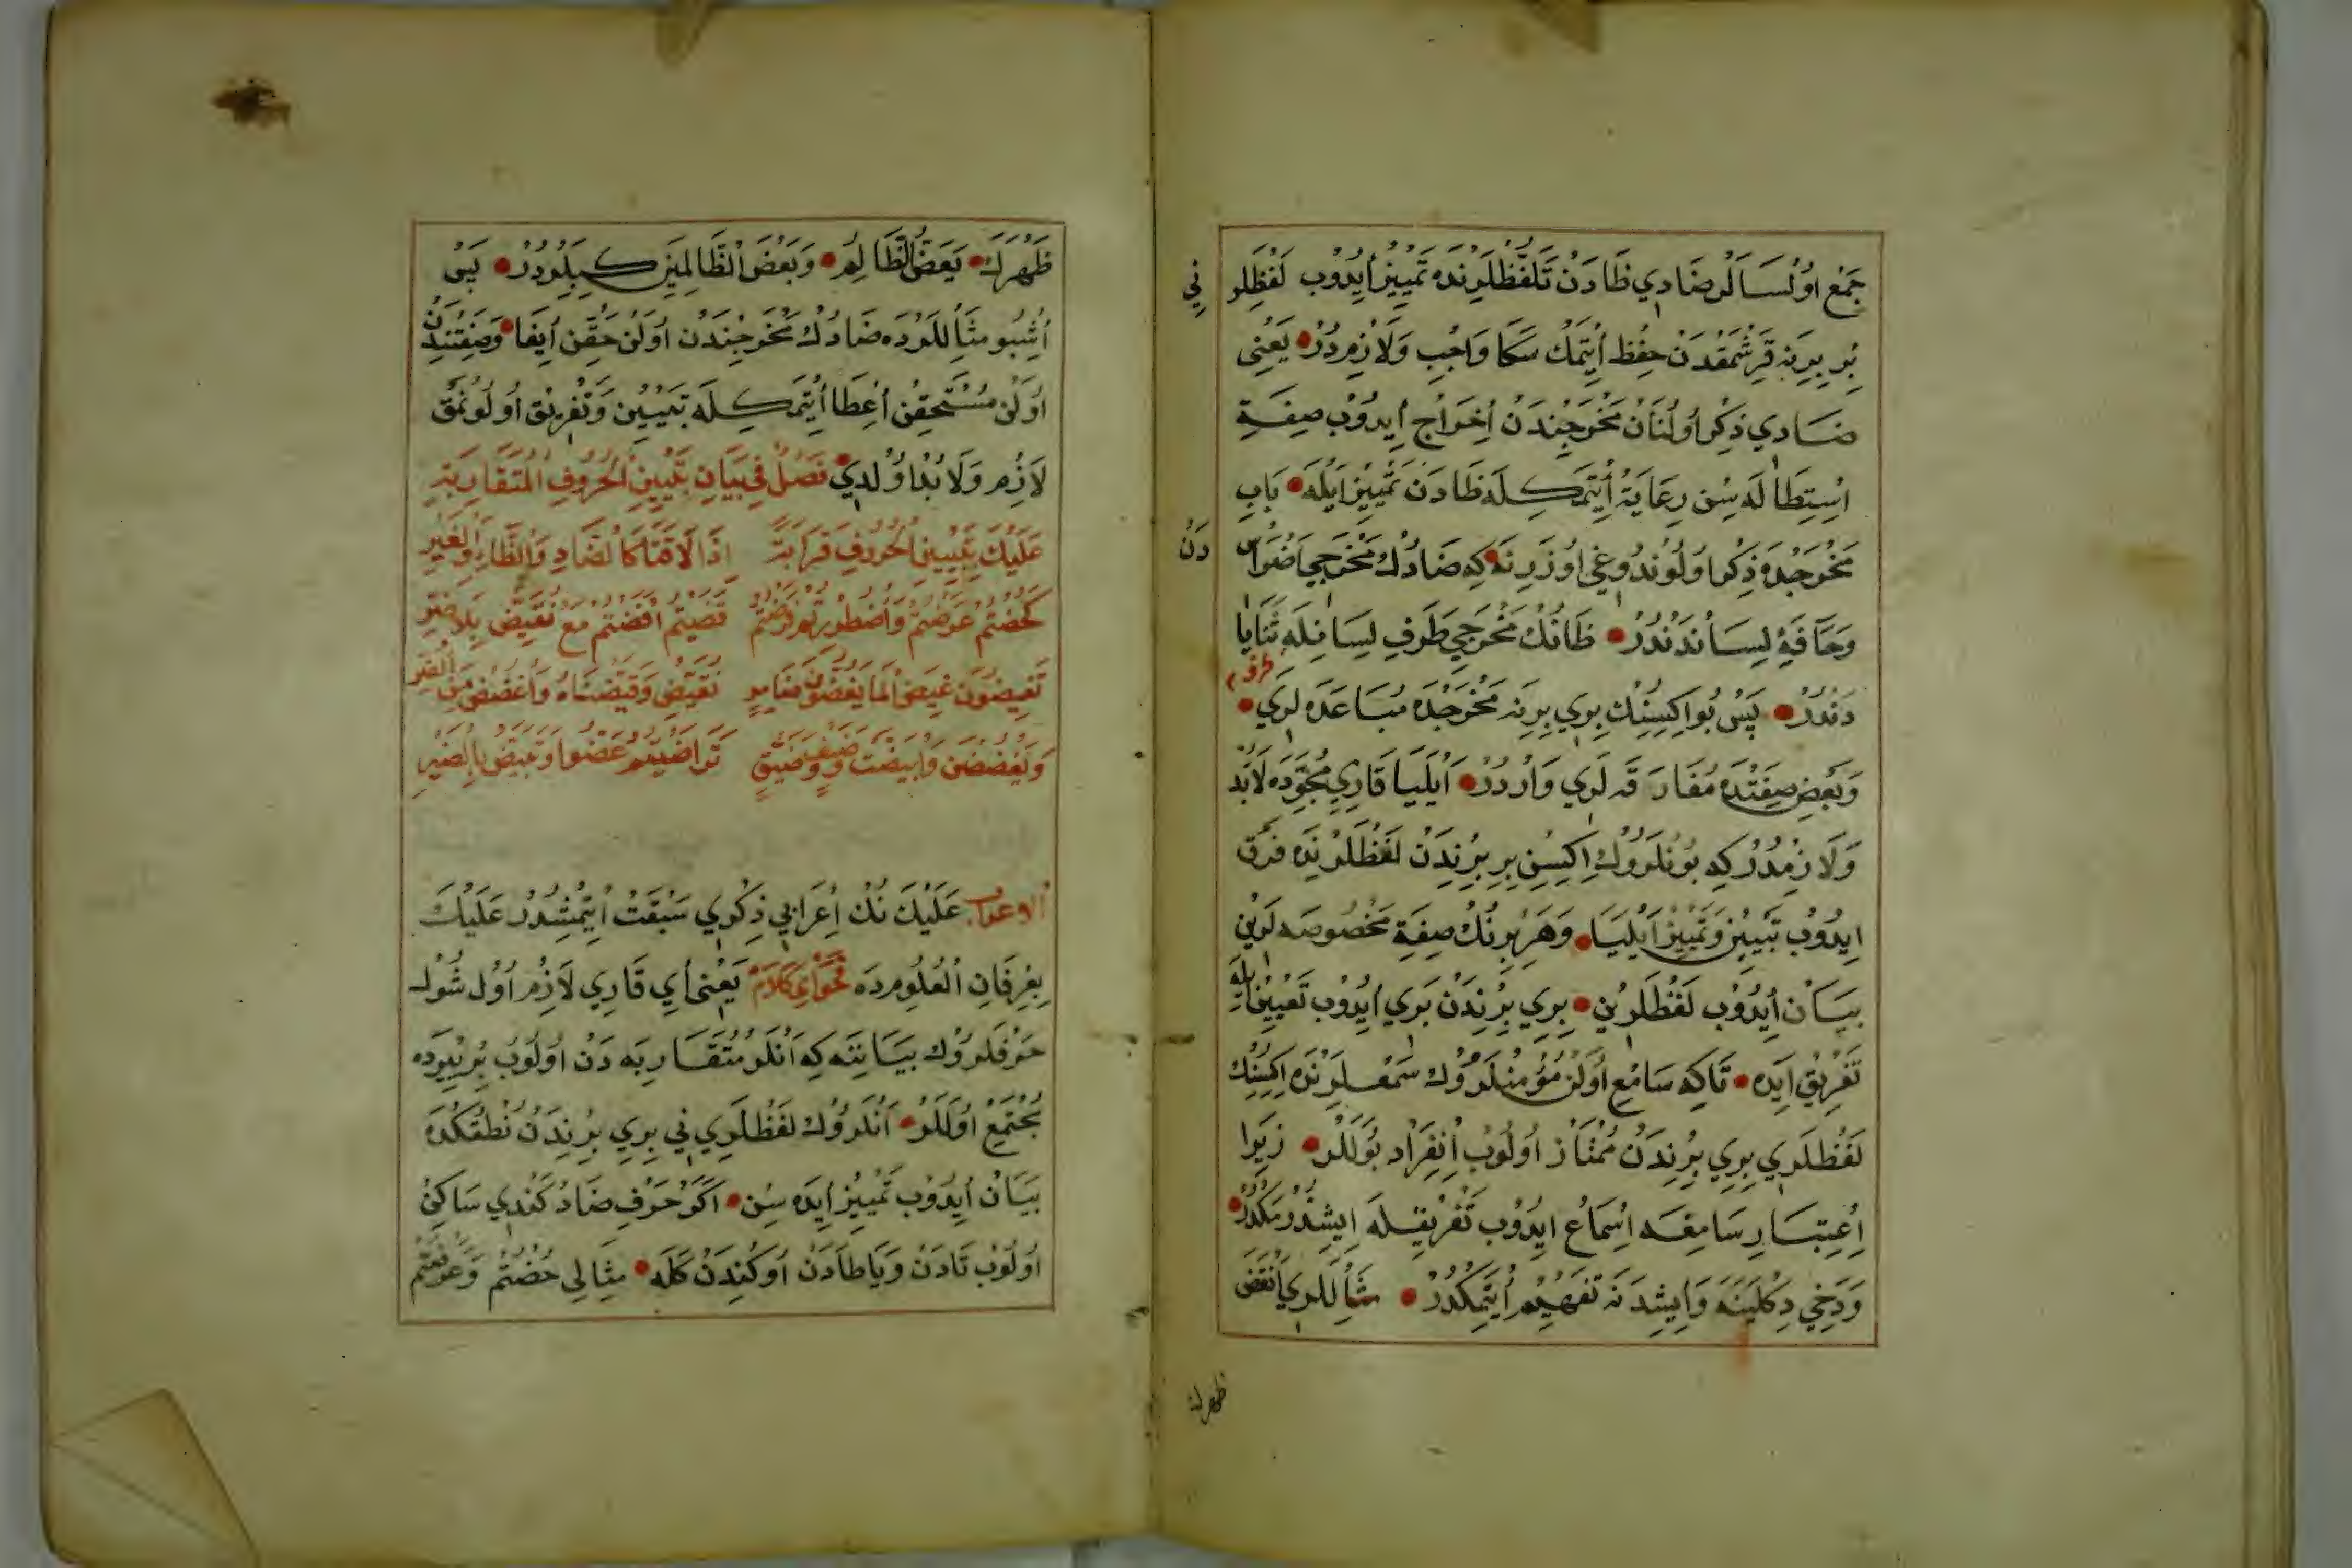 جَمْع اوُلْسَالَر ضَادِي ظَادَنْ تَلَفُّظْلَرِنْدَه تَمْيِيز اِيدُوب لَفْظِلَر
نِي
بِر بِرِينَه قَرِشْمَقْدَنْ حِفْظ اِيتْمَك سَكَا وَاجِب وَلَازِمدُرْ يَعْنِى
ضَادِي ذِكْر اوُلُنَانْ مَخْرَجِنْدَنْ اِخْرَاج اِيدُوبْ صِفَةِ
اِسْتِطَالَه سِن رِعَايَةْ اِيتْمَكِلَه ظَادَن تَمْيِيز اَيْلَه بَابِ
مَخْرَجْدَه ذِكْر اوُلُونْدُوغِى اوُزَرِنَه كِه ضَادُكْ مَخْرَجِي اَضْرَاس
دَنْ
وَحَافَهِٔ لِسَانْدَنْدُرْ ظَانُكْ مَخْرَجِي طَرَفِ لِسَانِلَه ثَنَايَا
طرف
دَنْدُرْ پَسْ بُو اِكِيسِنِكْ بِرِي بِرِينَه مَخْرَجْدَه مُبَاعَدَه لَرِي
وَبَعْضِ صِفَتْدَه مُفَارَقَه لَرِي وَارْدُرْ اَيْلَيَا قَارِئِ مُجَوِّدَه لَابُدّ
وَلَازِمْدُرْ كِه بُونْلَرُوكْ اِكِيسِن بِر بِرِنْدَنْ لَفْظَلَرِنْدَه فَرْق
اِيدُوبْ تَبْيِينْ وَتَمْيِيز اَيْلَيَا وَهَر بِرِنُكْ صِفَةِ مَخْصُوصَه لَرِيْن
بَيَانْ اِيدُوبْ لَفْظَلَرِيْنِ بِرِي بِرِنْدَنْ بَرِي اِيدُوبْ تَعْيِين اِيلَه
تَفْرِيق اِيدَه تَاكِه سَامِع اوُلَن مُؤْمِنْلَرُوكْ سَمْعْلَرِنْدَه اِكِيسِنُكْ
لَفْظْلَرِي بِرِي بِرِنْدَنْ مُمْتَازْ اوُلُوبْ اِنْفِرَاد بُولَلَرْ زِيرَا
اِعْتِبَارِ سَامِعَه اِسْمَاعْ اِيدُوب تَفْرِيقِلَه اِيشِتْدِرْمَكْدُرْ
وَدَخِي دِكْلَيِنَه وَاِيشِدَنَه تَفْهِيم اِيتْمَكْدُرْ مِثَاللَرِي اَنْقَضَ
ظهرك
ظَهْرَكَ يَعَضُّ الظَّالِمُ وَبَعْضَ الظَّالِمِينَ كِبِلَرْدُرْ پَسْ
اُشْبُو مِثَاللَرْدَه ضَادُكْ مَخْرَجِنْدَن اوُلَنْ حَقِّن اِيفَا وَصِفَتِنْدَنْ
اوُلَن مُسْتَحَقِّنْ اِعْطَا اِيتْمَكِلَه تَبْيِين وَتَفْرِيق اوُلُونْمَقْ
لَازِم وَلَابُدْ اوُلْدِي فَصْلٌ فِي بَيَانِ تَبْيِينِ الْحُرُوفِ الْمُتَقَارِبَةِ
عَلَيْكَ بِتَبْيِينِ الْحُرُوفِ قَرَابَةً اِذَا لَاقَتَا كَالضَّادِ وَالظَّاءِ وَالْغَيْرِ
كَخُضْتُمْ عَرَضْتُمْ وَاضْطُرِرْتُمْ فَرَضْتُمْ قَضَيْتُمْ اَفَضْتُمْ مَعْ نُقَيِّضْ بِلَا ضَيْرِ
تُغْمِضُونَ غِيضَ الْمَا يَغْضُضْنَ ضَامِرٍ نُقَيِّضْ وَقَيَّضْنَاهُ وَاغْضُضْ مِنَ الضَّيْرِ
وَيَغْضُضْنَ وَابْيَضَّتْ وَضَيْفٍ وَضَيِّقٍ تَرَاضَيْتُمْ عَضُّوا وَتَبْيَضُّ بِالضَّيْرِ
الاعراب عَلَيْكَ نُكْ اِعْرَابِي ذِكْرِي سَبَقَتْ اِيتْمِشْدُرْ عَلَيْكَ
بِعِرْفَانِ الْعُلُومِدَه فَحْوَاىِ كَلَامْ يَعْنِى اَيْ قَارِي لَازِم اوُل شُولْ
حَرْفْلَرُوكْ بَيَانِنَه كِه اَنْلَر مُتَقَارِبَه دَنْ اوُلُوبْ بِر يِيرْدَه
مُجْتَمِعْ اوُلَلَرْ اَنْلَرُوكْ لَفْظْلَرِي نِي بِرِي بِرِنْدَنْ نُطْقُكْدَه
بَيَانْ اِيدُوبْ تَمْيِيز اِيدَه سِن اَكَرْ حَرْفِ ضَادْ كَنْدِي سَاكِنْ
اوُلُوبْ تَادَنْ وَيَا طَادَنْ اوُكِنْدَنْ كَلَه مِثَالِى خُضْتُمْ وَعَرَضْتُمْ